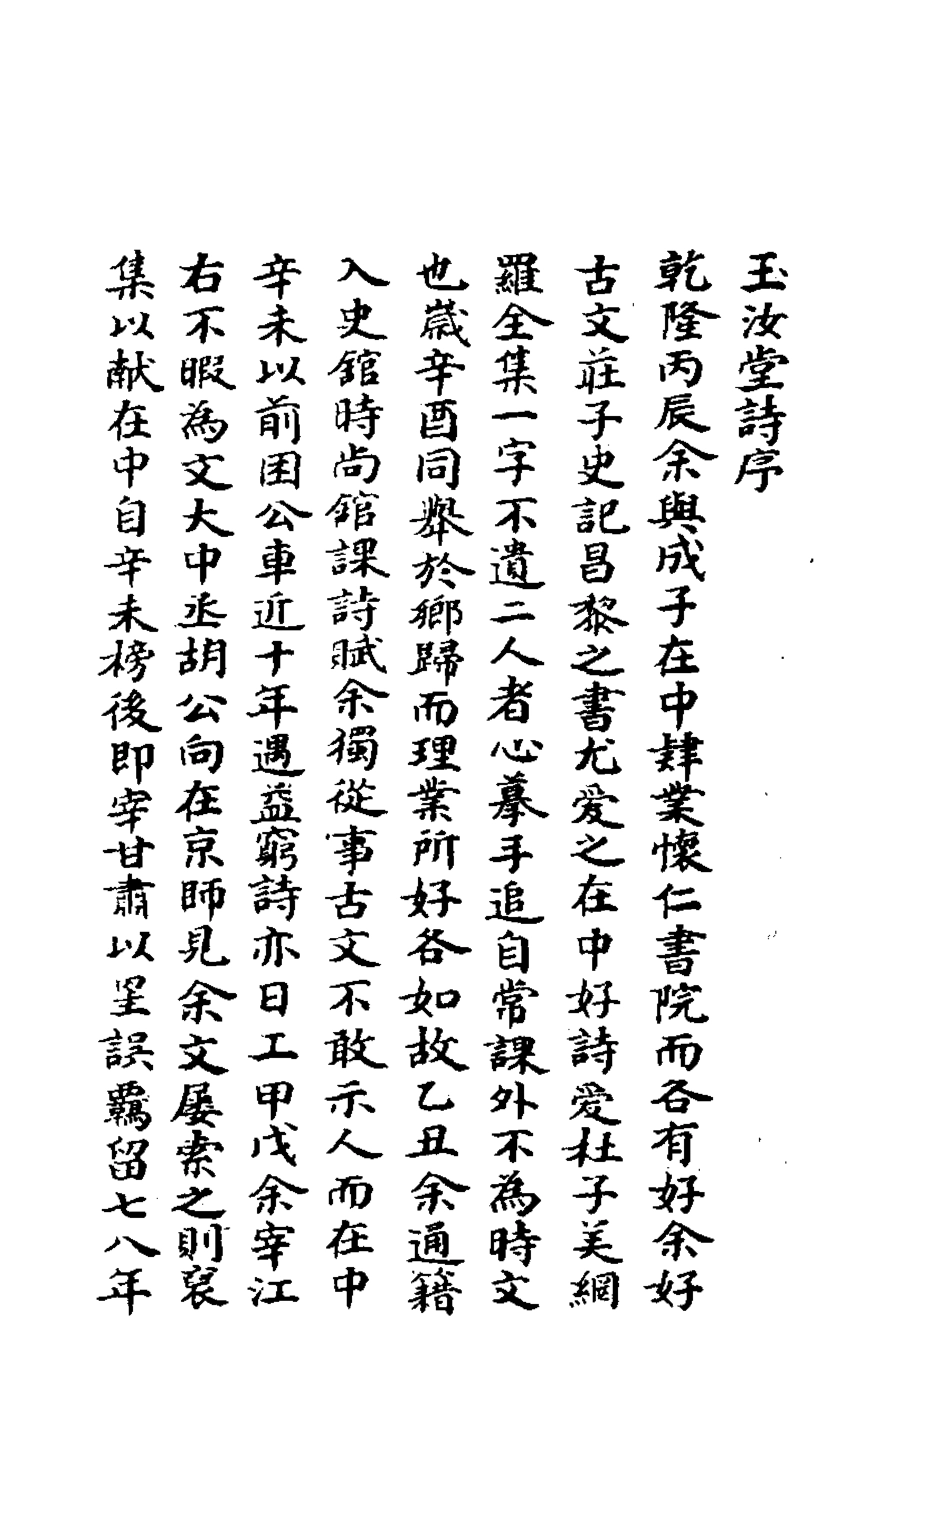 玉汝堂詩序
乾隆丙辰余與成子在中肄業懷仁書院而各有好余好
古文莊子史記昌黎之書尤爱之在中好詩愛杜子美網
羅全集一字不遺二人者心摹手追自常課外不為時文
也歲辛酉同舉於鄉歸而理業所好各如故乙丑余通籍
入史館時尚館課詩賦余獨從事古文不敢示人而在中
辛未以前困公車近十年遇益窮詩亦日工甲戌余宰江
右不暇為文大中丞胡公向在京師見余文屡索之則裒
集以献在中自辛未榜後即宰甘肅以罣誤羈留七八年